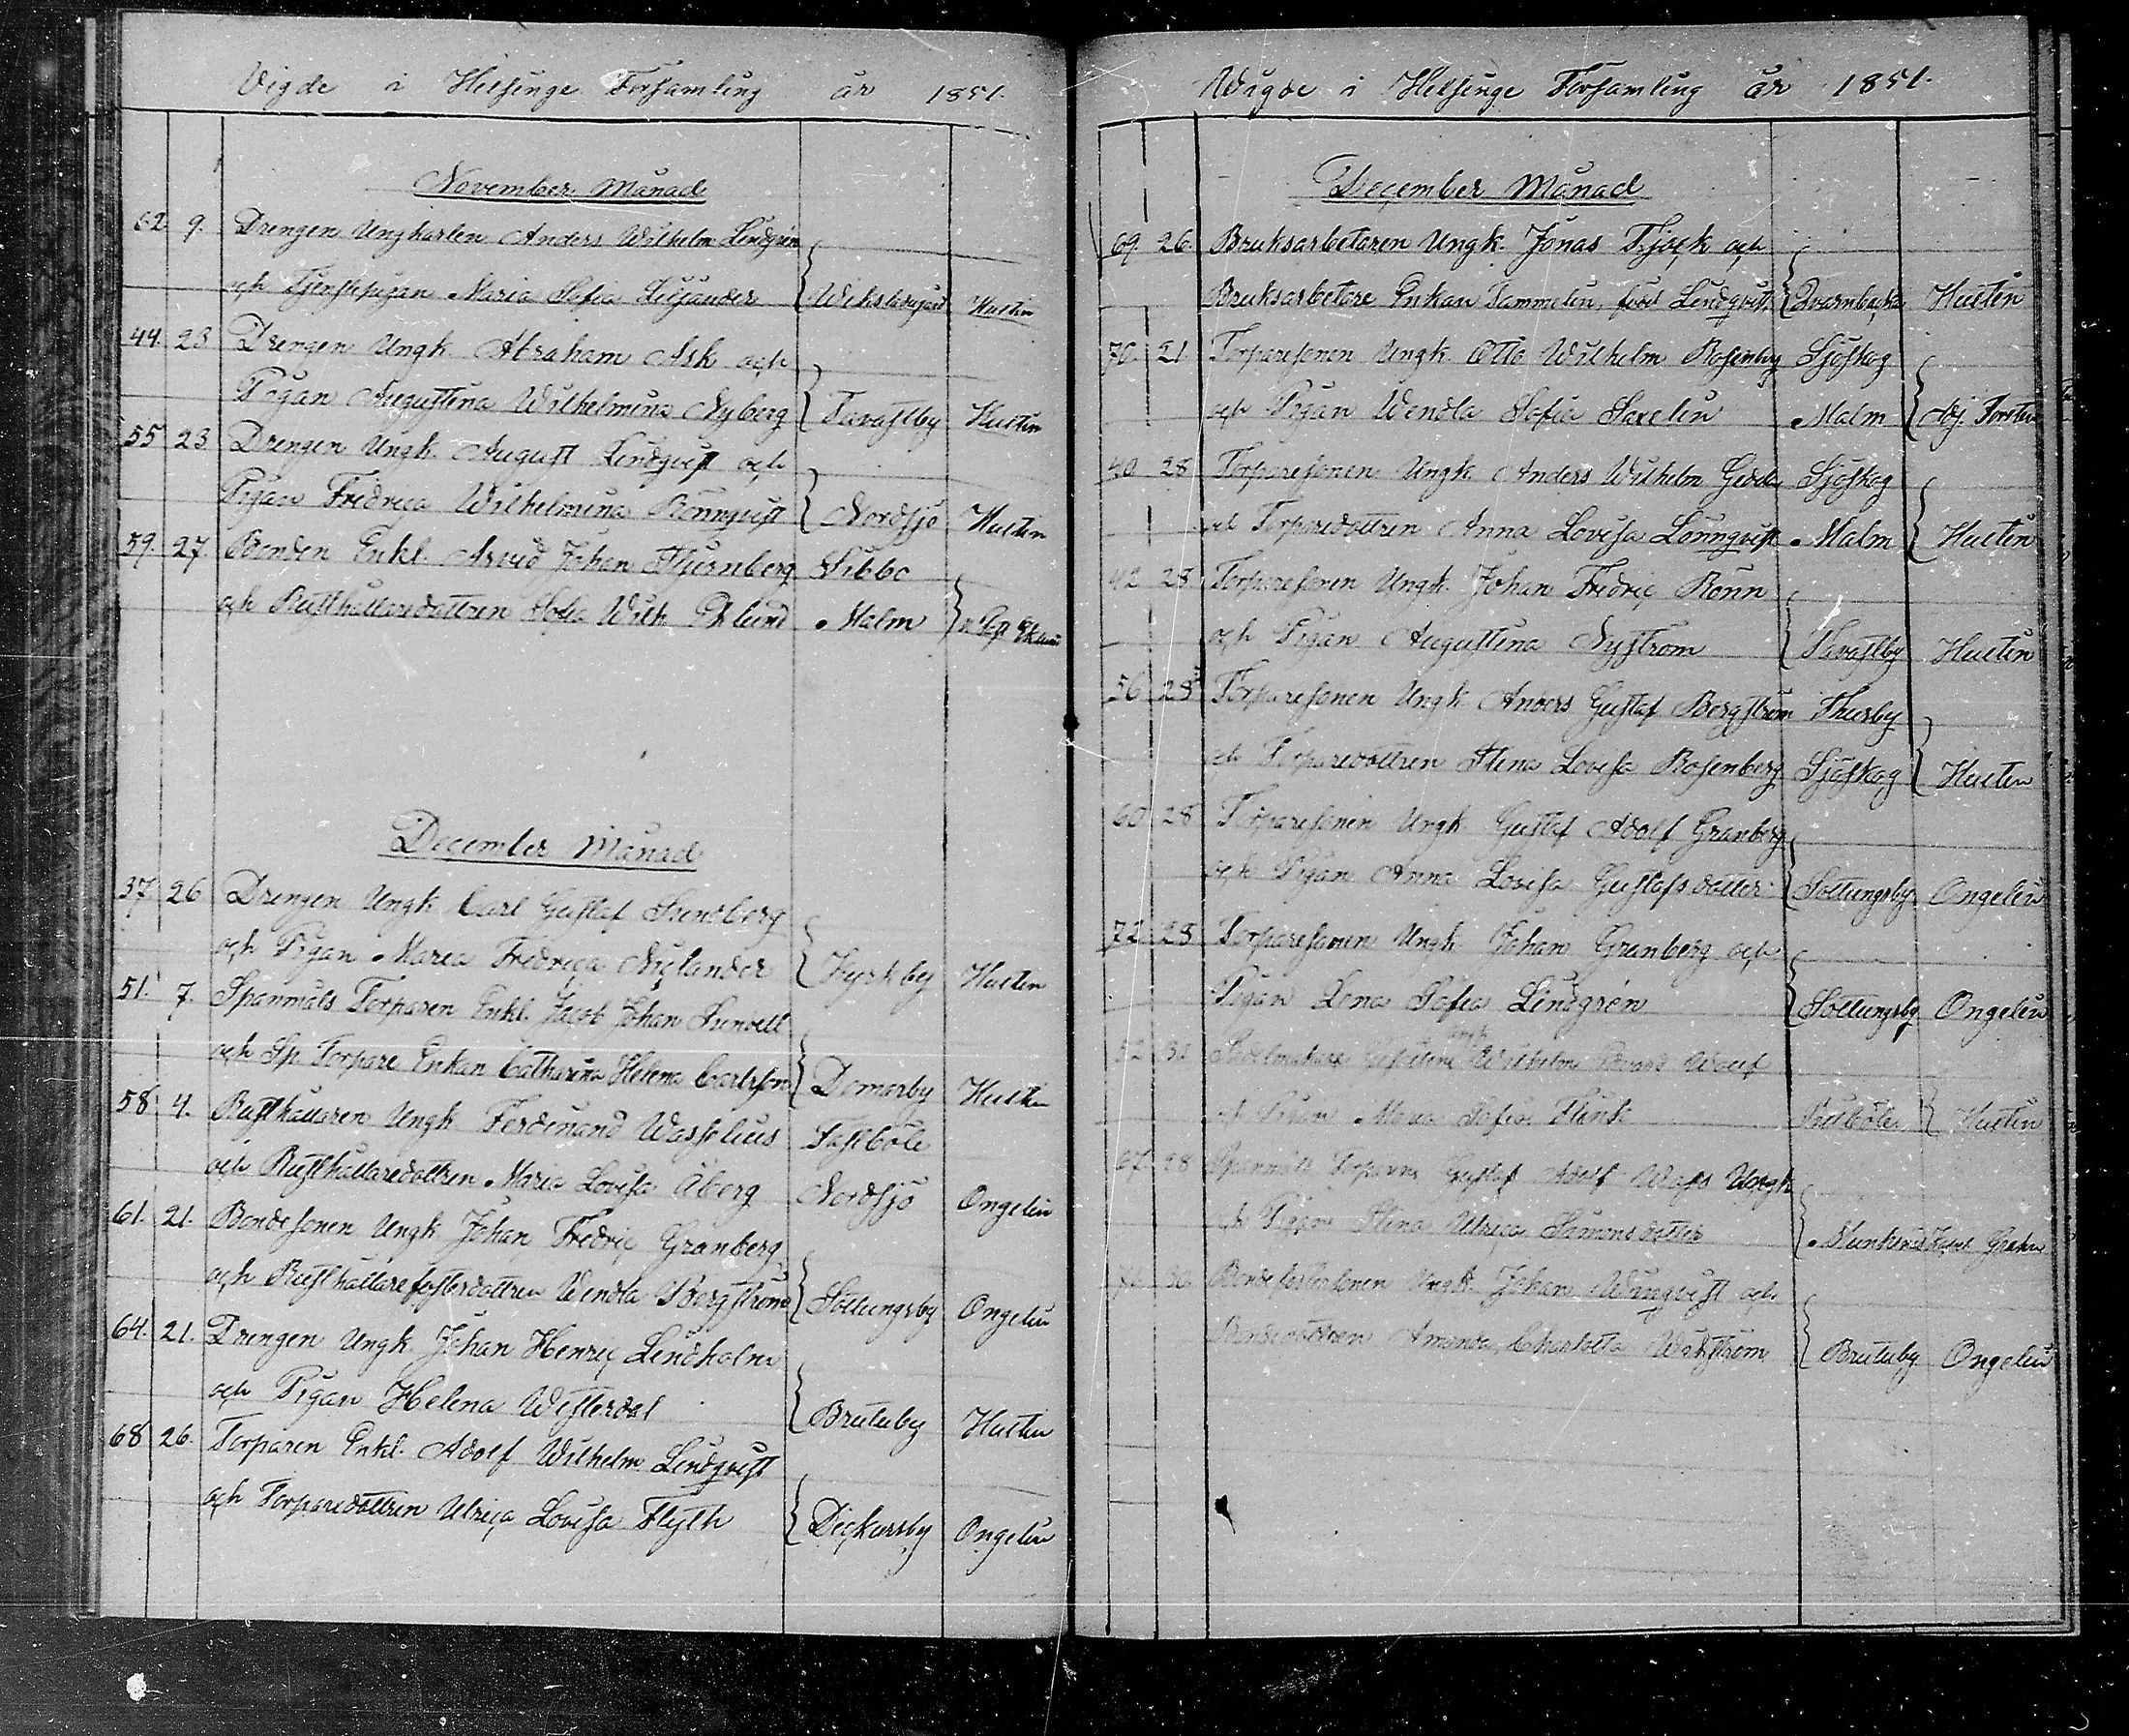 Vigde i Helsinge Församling år 1851.
November Månad
62. 9. Drengen Ungkarlen Anders Wilhelm Lindgrén
och Tjenstepigan Maria Sofia Liljander Hultin
44. 23 Drengen Ungk. Abraham Ask och
Pigan Augustina Wilhelmina Nyberg Tavastby Hultin
55 23 Drengen Ungk. August Lindqvist och
Pigan Fredrica Wilhelmina Rönnqvist Nordsjö Hultin
59. 27. Bonden Enkl. Arvid Johan Thurnberg Sibbo
och Rusthållaredottren Sofia Wilh. Eklund Malm
December Månad
37 26 Drengen Ungk. Carl Gustaf Sundberg
och Pigan Maria Fredrica Nylander Kyrkby Hultin
51. 7. Spanmåls Torparen Enkl. Jacob Johan Sundell
och Sp. Torpare Enkan Catharina Helena Carlsson Domarby Hultin
58. 4. Rusthållaren Ungk. Ferdinand Wasselius Fastböle
och Rusthållaredottren Maria Lovisa Åberg Nordsjö Ongelin
61. 21. Bondesonen Ungk. Johan Fredric Granberg
och Rusthållarefosterdottren Wendla Bergström Sottungsby Ongelin
64. 21. Drengen Ungk. Johan Henric Lindholm
och Pigan Helena Westerdal Brutuby Hultin
68 26. Torparen Enkl. Adolf Wilhelm Lindqvist
och Torparedottren Ulrica Lovisa Flyth Dickursby Ongelin
Wigde i Helsinge Församling år 1851.
December Månad
69. 26. Bruksarbetaren Ungk. Jonas Tjäck och
Bruksarbetare Enkan Sammelin, född Lindqvist Qvarnbacka Hultin
70. 21. Torparesonen Ungk. Otto Wilhelm Rosenberg Sjöskog
och Pigan Wendla Sofia Saxelin Malm Adj. Forstén
40. 28 Torparesonen Ungk. Anders Wilhelm Gedda Sjöskog
och Torparedottren Anna Lovisa Lönnqvist Malm Hultin
42. 28. Torparesonen Ungk. Johan Fredric Rönn
och Pigan Augustina Nyström Tavastby Hultin
56 28 Torparesonen Ungk. Anders Gustaf Bergström Thusby
och Torparedottren Stina Lovisa Rosenberg Sjöskog Hultin
60 28 Torparesonen Ungk. Gustaf Adolf Granberg
och Pigan Anna Lovisa Gustafsdotter Sottungsby Ongelin
72. 28 Torparesonen Ungk. Johan Granberg och
Pigan Lena Sofia Lindgrén Sottungsby Ongelin
52 31 Sadelmakare Gesellen Ungk. Wilhelm Edvard
och Pigan Maria Sofia Flink Hultin
67. 28 Spanmåls Torparen Gustaf Adolf Ungk.
och Pigan Stina Ulrica Simonsdotter Grahn
30 Bondefostersonen Ungk. Johan Wingqvist och
Bondedottren Amanda Charlotta Wikström Brutuby Ongelin